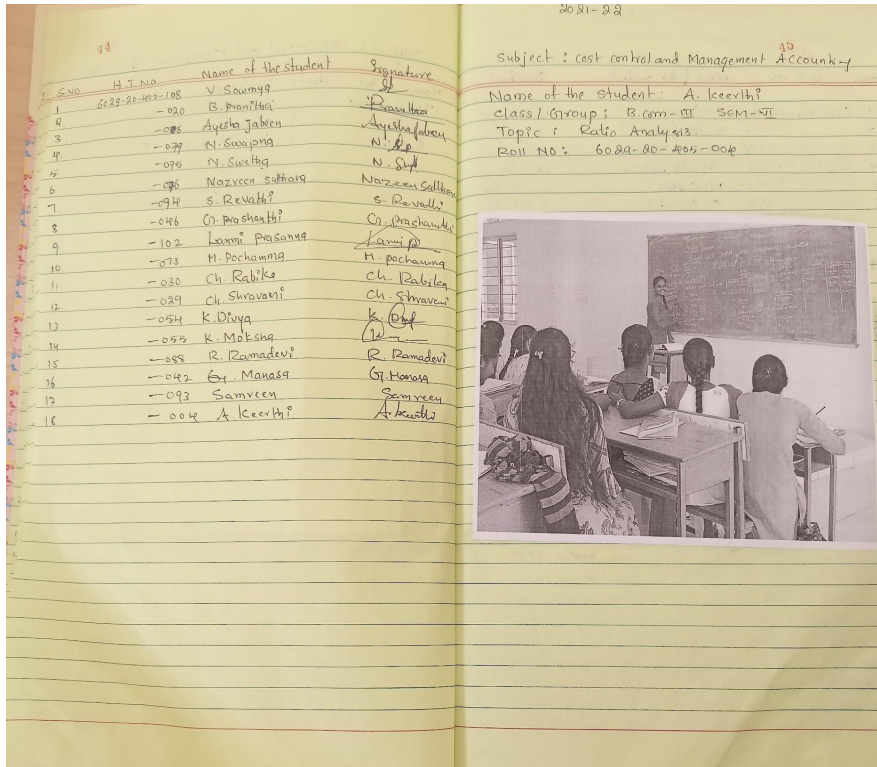 44
S.NO H.T.NO Name of the student Signature
1 6029-20-405-108 V. Sowmya
2 -020 B. Pranitha Pranitha
3. -006 Ayesha Jabeen Ayesha Jabeen
4. -079 N. Swapna N.
5 -095 N. Swetha N. Swt
6 -076 Nazreen sulthana Nazreen Sulthana
7. -094 S. Revathi S. Revathi
8 -046 G. Prashanthi G. Prashanthi
9 -102 Laxmi Prasanna Laxmi p
10 -073 M. Pochamma M. pochamma
11 -030 Ch. Rabika Ch. Rabika
12 -029 Ch. Shravani Ch. Shravani
13 -054 K. Divya K.
14 -055 K. Moksha
15 -088 R. Ramadevi R. Ramadevi
16 -042 G. Manasa G. Manasa
17 -093 Samreen Samreen
18 -004 A. Keerthi A. Keerthi
2021-22
45
Subject : cost control and Management Accounting
Name of the student : A. Keerthi
class/Group : B.com-III SEM-VI
Topic : Ratio Analysis.
Roll No : 6029-20-405-004